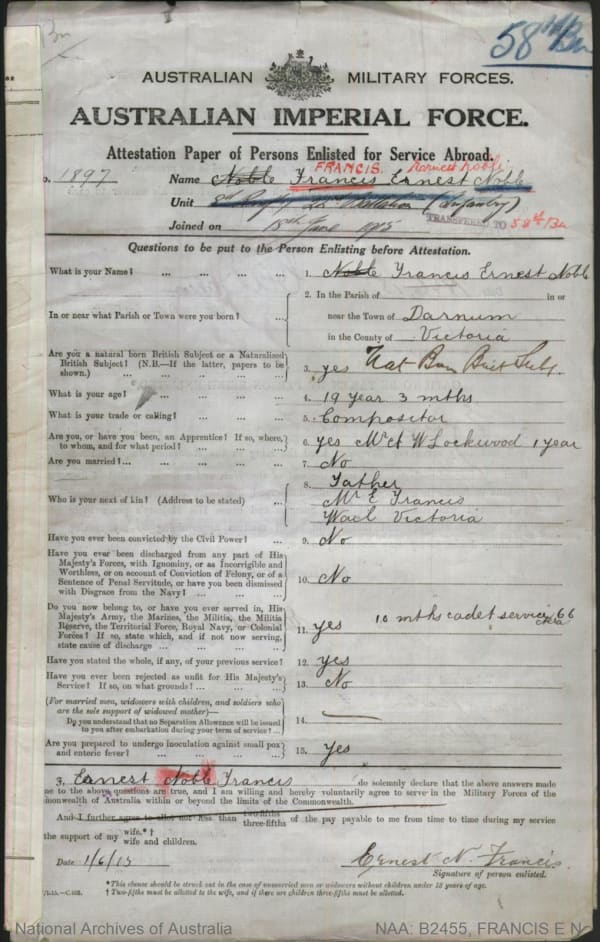 58th Bn
AUSTRALIAN MILITARY FORCES.
AUSTRALIAN IMPERIAL FORCE.
Attestation Paper of Persons Enlisted for Service Abroad.
FRANCIS. Earnest Noble
o. 1897 Name Noble Francis Ernest Noble
Unit (Infantry)
TRANSFERRED TO 58th Bn
Joined on 18th June 1915
Questions to be put to the Person Enlisting before Attestation.
What is your Name? ... ... ... ... 1. Noble Francis Ernest Noble
In or near what Parish or Town were you born? ... 2. In the Parish of in or
near the Town of Darnum
in the County of Victoria
Are you a natural born British Subject or a Naturalised
British Subject? (N.B.—If the latter, papers to be
shown.) ... ... ... ... ... 3. yes Nat Born Brit Subj.
What is your age? ... ... ... 4. 19 year 3 mths
What is your trade or calling? ... ... ... 5. Compositor
Are you, or have you been, an Apprentice? If so, where,
to whom, and for what period? ... ... ... 6. yes W Lockwood 1 year
Are you married?... ... ... ... ... 7. No
Who is your next of kin? (Address to be stated) ... 8. Father
Mr E Francis
Victoria
Have you ever been convicted by the Civil Power? ... 9. No
Have you ever been discharged from any part of His
Majesty's Forces, with Ignominy, or as Incorrigible and
Worthless, or on account of Conviction of Felony, or of a
Sentence of Penal Servitude, or have you been dismissed
with Disgrace from the Navy? ... ... ... 10. No
Do you now belong to, or have you ever served in, His
Majesty's Army, the Marines, the Militia, the Militia
Reserve, the Territorial Force, Royal Navy, or Colonial
Forces? If so, state which, and if not now serving,
state cause of discharge ... ... ... ... 11. yes 10 mths cadet service 66
Have you stated the whole, if any, of your previous service? 12. yes
Have you ever been rejected as unfit for His Majesty's
Service? If so, on what grounds? ... ... ... 13. No
(For married men, widowers with children, and soldiers who
are the sole support of widowed mother)—
Do you understand that no Separation Allowance will be issued
to you after embarkation during your term of service?... 14. —
Are you prepared to undergo inoculation against small pox
and enteric fever? ... ... ... ... 15. Yes
3, Earnest Noble Francis do solemnly declare that the above answers made
me to the above questions are true, and I am willing and hereby voluntarily agree to serve in the Military Forces of the
monwealth of Australia within or beyond the limits of the Commonwealth.
And I further agree to allot not less than two-fifths
three-fifths of the pay payable to me from time to time during my service
the support of my wife.*†
wife and children.
Date 1/6/15 Ernest N. Francis
Signature of person enlisted.
*This clause should be struck out in the case of unmarried men or widowers without children under 18 years of age.
† Two-fifths must be allotted to the wife, and if there are children three-fifths must be allotted.
National Archives of Australia NAA: B2455, FRANCIS E N